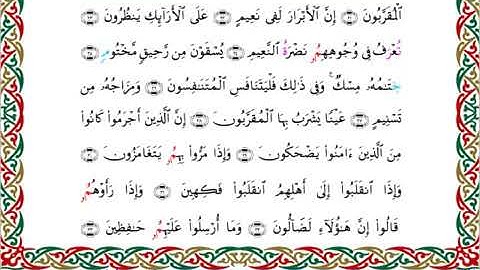 ٱلْمُقَرَّبُونَ ٢١ إِنَّ ٱلْأَبْرَارَ لَفِى نَعِيمٍ ٢٢ عَلَى ٱلْأَرَآئِكِ يَنظُرُونَ ٢٣
تُعْرَفُ فِى وُجُوهِهِمُۥ نَضْرَةُ ٱلنَّعِيمِ ٢٤ يُسْقَوْنَ مِن رَّحِيقٍ مَّخْتُومٍ ٢٥
خِتَٰمُهُۥ مِسْكٌ ۚ وَفِى ذَٰلِكَ فَلْيَتَنَافَسِ ٱلْمُتَنَٰفِسُونَ ٢٦ وَمِزَاجُهُۥ مِن
تَسْنِيمٍ ٢٧ عَيْنًا يَشْرَبُ بِهَا ٱلْمُقَرَّبُونَ ٢٨ إِنَّ ٱلَّذِينَ أَجْرَمُوا۟ كَانُوا۟
مِنَ ٱلَّذِينَ ءَامَنُوا۟ يَضْحَكُونَ ٢٩ وَإِذَا مَرُّوا۟ بِهِمُۥ يَتَغَامَزُونَ ٣٠
وَإِذَا ٱنقَلَبُوا۟ إِلَىٰ أَهْلِهِمُ ٱنقَلَبُوا۟ فَكِهِينَ ٣١ وَإِذَا رَأَوْهُمُۥ
قَالُوا۟ إِنَّ هَٰٓؤُلَآءِ لَضَآلُّونَ ٣٢ وَمَآ أُرْسِلُوا۟ عَلَيْهِمُۥ حَٰفِظِينَ ٣٣